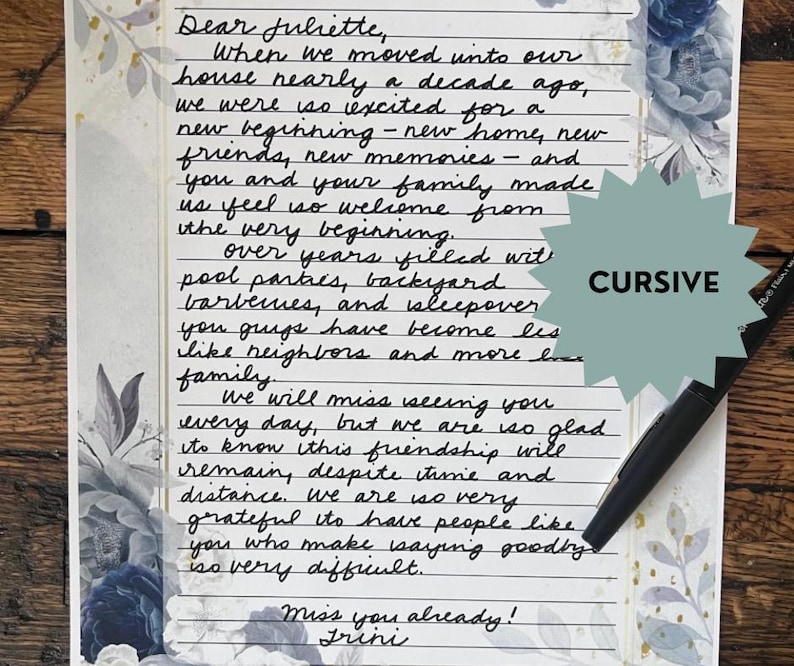 Dear Juliette,
When we moved into our
house nearly a decade ago,
we were so excited for a
new beginning – new home, new
friends, new memories – and
you and your family made
us feel so welcome from
the very beginning.
Over years filled with
pool parties, backyard
barbecues, and sleepover
you guys have become les
like neighbors and more
family.
We will miss seeing you
every day, but we are so glad
to know this friendship will
remain, despite time and
distance. We are so very
grateful to have people like
you who make saying goodbye
so very difficult.
Miss you already!
Trini
CURSIVE